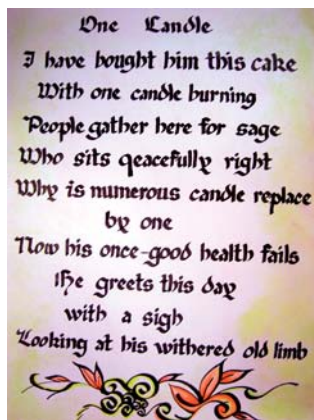 One Candle
I have bought him this cake
With one candle burning
People gather here for sage
Who sits qeacefully right
Why is numerous candle replace
by one
Now his once-good health fails
He greets this day
with a sigh
Looking at his withered old limb